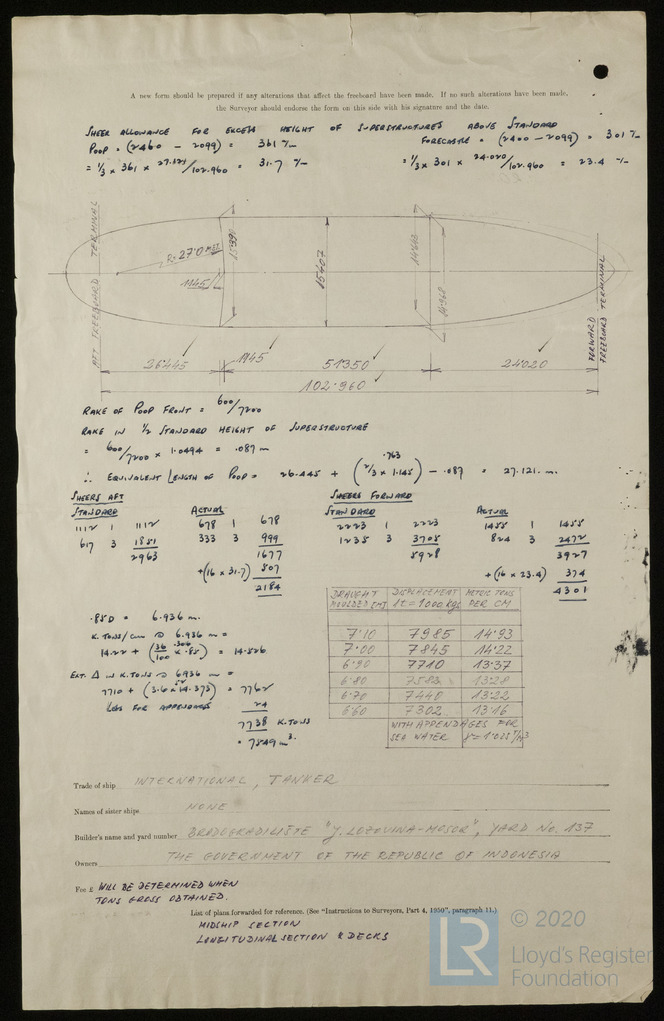 A new form should be prepared if any alterations that affect the freeboard have been made. If no such alterations have been made,
the Surveyor should endorse the form on this side with his signature and the date.
SHEER ALLOWANCE FOR EXCESS HEIGHT OF SUPERSTRUCTURES ABOVE STANDARD
POOP = (2460 - 2099) = 361 m/m FORECASTLE = (2400 - 2099) = 301 m/m
= 1/3 x 361 x 27.121/102.960 = 31.7 m/m = 1/3 x 301 x 24.020/102.960 = 23.4 m/m
AFT FREEBOARD TERMINAL
R=27'0 MET.
1145
15390
15407
14442
14968
FORWARD FREEBOARD TERMINAL
26445 1145 51350 24020
102.960
RAKE OF POOP FRONT = 600/7200
RAKE IN 1/2 STANDARD HEIGHT OF SUPERSTRUCTURE
= 600/7200 x 1.0494 = .087 m
∴ EQUIVALENT LENGTH OF POOP = 26.445 + (2/3 x 1.145) - .087 = 27.121. m.
.763
SHEERS AFT SHEERS FORWARD
STANDARD ACTUAL STANDARD ACTUAL
1112 1 1112 678 1 678 2223 1 2223 1455 1 1455
617 3 1851 333 3 999 1235 3 3705 824 3 2472
2963 1677 5928 3927
+(16 x 31.7) 507 +(16 x 23.4) 374
2184 4301
DRAUGHT MOULDED [M] DISPLACEMENT 1t = 1000 kgs METRIC TONS PER CM
7'10 7985 14'93
7'00 7845 14'22
6'90 7710 13'37
6'80 7583 13'28
6'70 7440 13'22
6'60 7302 13'16
WITH APPENDAGES FOR
SEA WATER γ=1'025 T/M3
.85D = 6.936 m.
K.TONS/cm @ 6.936 m =
14.22 + (36/100 x .85) = 14.526
.306
EXT. Δ IN K.TONS @ 6.936 m =
7710 + (3.6 x 14.375) = 7762
LESS FOR APPENDAGES 24
7738 K.TONS
= 7549 m3.
Trade of ship INTERNATIONAL, TANKER
Names of sister ships NONE
Builder's name and yard number BRODOGRADILIŠTE "J. LOZOVINA-MOSOR", YARD No. 137
Owners THE GOVERNMENT OF THE REPUBLIC OF INDONESIA
Fee £ WILL BE DETERMINED WHEN
TONS GROSS OBTAINED.
List of plans forwarded for reference. (See "Instructions to Surveyors, Part 4, 1950", paragraph 11.)
MIDSHIP SECTION
LONGITUDINAL SECTION & DECKS
LR © 2020
Lloyd's Register
Foundation